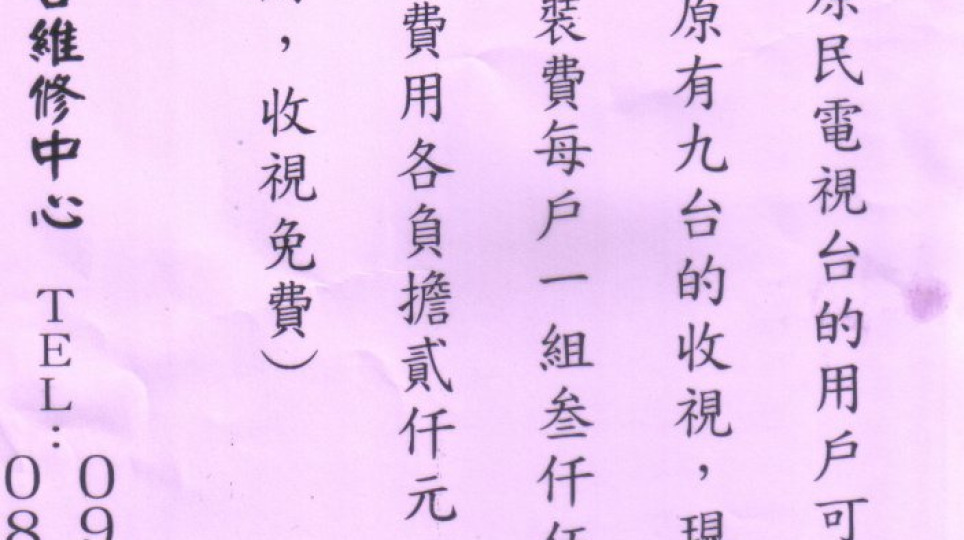 原民電視台的用戶可
原有九台的收視，現
裝費每戶一組叁仟伍
費用各負擔貳仟元
，收視免費）
維修中心 TEL：
09
08